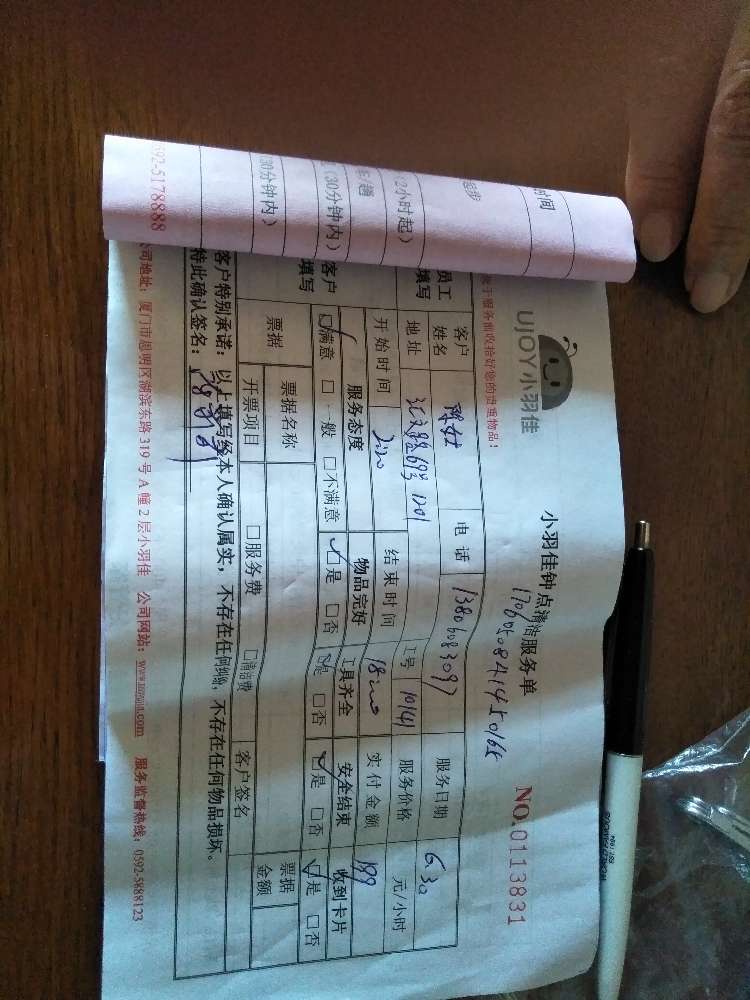 UJOY小羽佳
小羽佳钟点清洁服务单
NO.0113831
收拾好您的贵重物品！
员工填写
客户姓名
电话
13806083097
服务日期
6.30
地址
69号1201
工号
10141
服务价格
元/小时
开始时间
结束时间
18:00
实付金额
199
客户填写
服务态度
物品完好
工具齐全
安全结束
收到卡片
☑满意 □一般 □不满意
☑是 □否
☑是 □否
☑是 □否
☑是 □否
票据
票据名称
票据金额
开票项目
□服务费
□清洁费
客户签名
客户特别承诺：以上填写经本人确认属实，不存在任何纠纷，不存在任何物品损坏。
特此确认签名：
公司地址：厦门市思明区湖滨东路 319 号 A 幢 2 层小羽佳 公司网站： 服务监督热线：0592-5888123
时间
起步
(2小时起)
(30分钟内)
30分钟内)
592-5178888